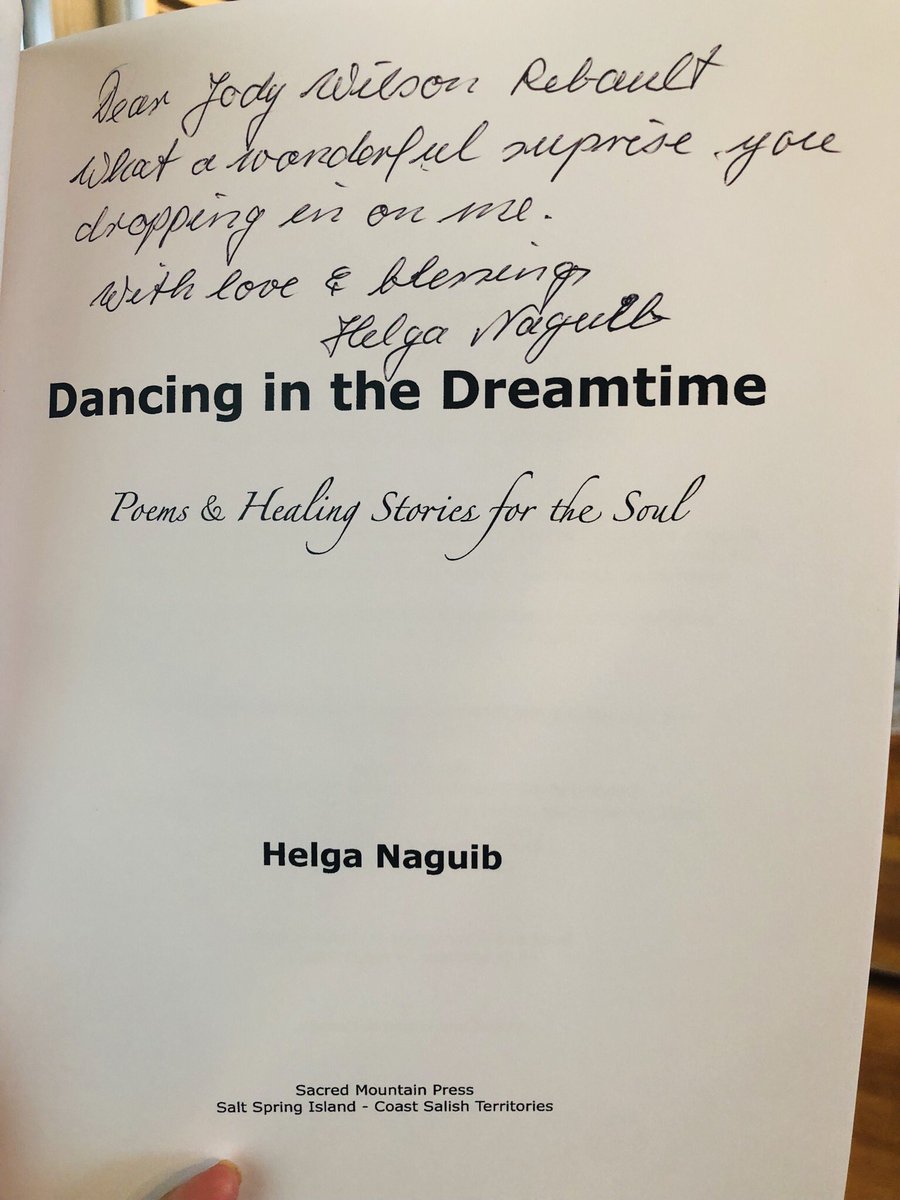 Dear Jody Wilson Rebault
What a wonderful suprise you
dropping in on me.
With love & blessings
Helga Naguib
Dancing in the Dreamtime
Poems & Healing Stories for the Soul
Helga Naguib
Sacred Mountain Press
Salt Spring Island - Coast Salish Territories